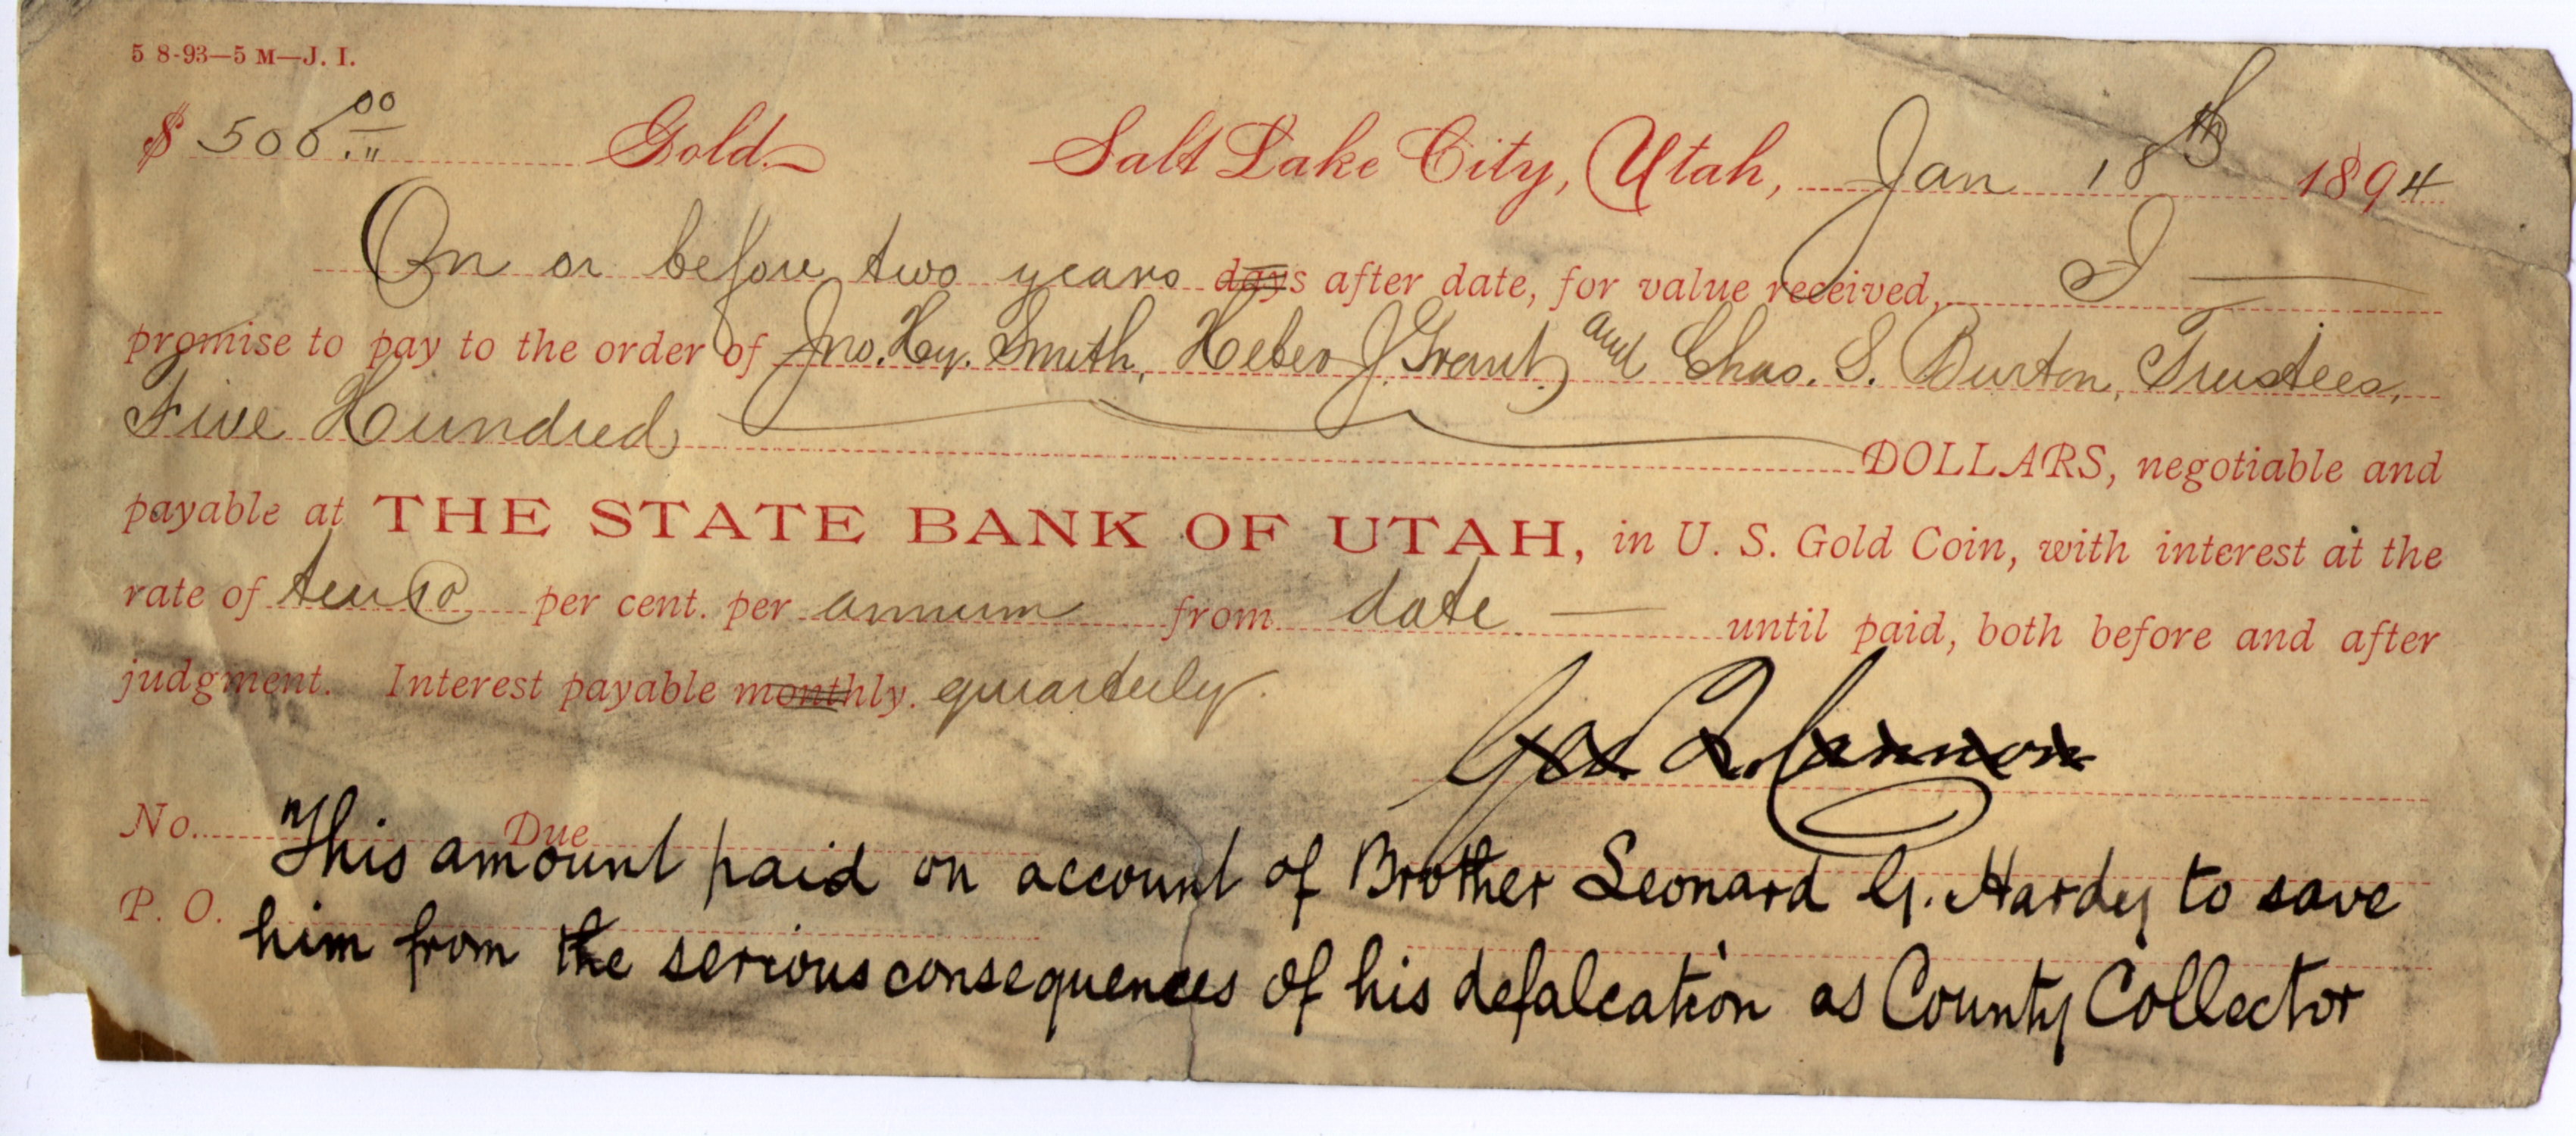 5 8-93—5 M—J. I.
$ 500.00 Gold. Salt Lake City, Utah, Jan 18th 1894
On or before two years days after date, for value received, I
promise to pay to the order of Jno. Hy. Smith, Heber J. Grant, and Chas. S. Burton, Trustees,
Five Hundred DOLLARS, negotiable and
payable at THE STATE BANK OF UTAH, in U. S. Gold Coin, with interest at the
rate of ten 10 per cent. per annum from date until paid, both before and after
judgment. Interest payable monthly. quarterly.
Geo. Q. Cannon
No. Due
This amount paid on account of Brother Leonard G. Hardy to save
P. O.
him from the serious consequences of his defalcation as County Collector